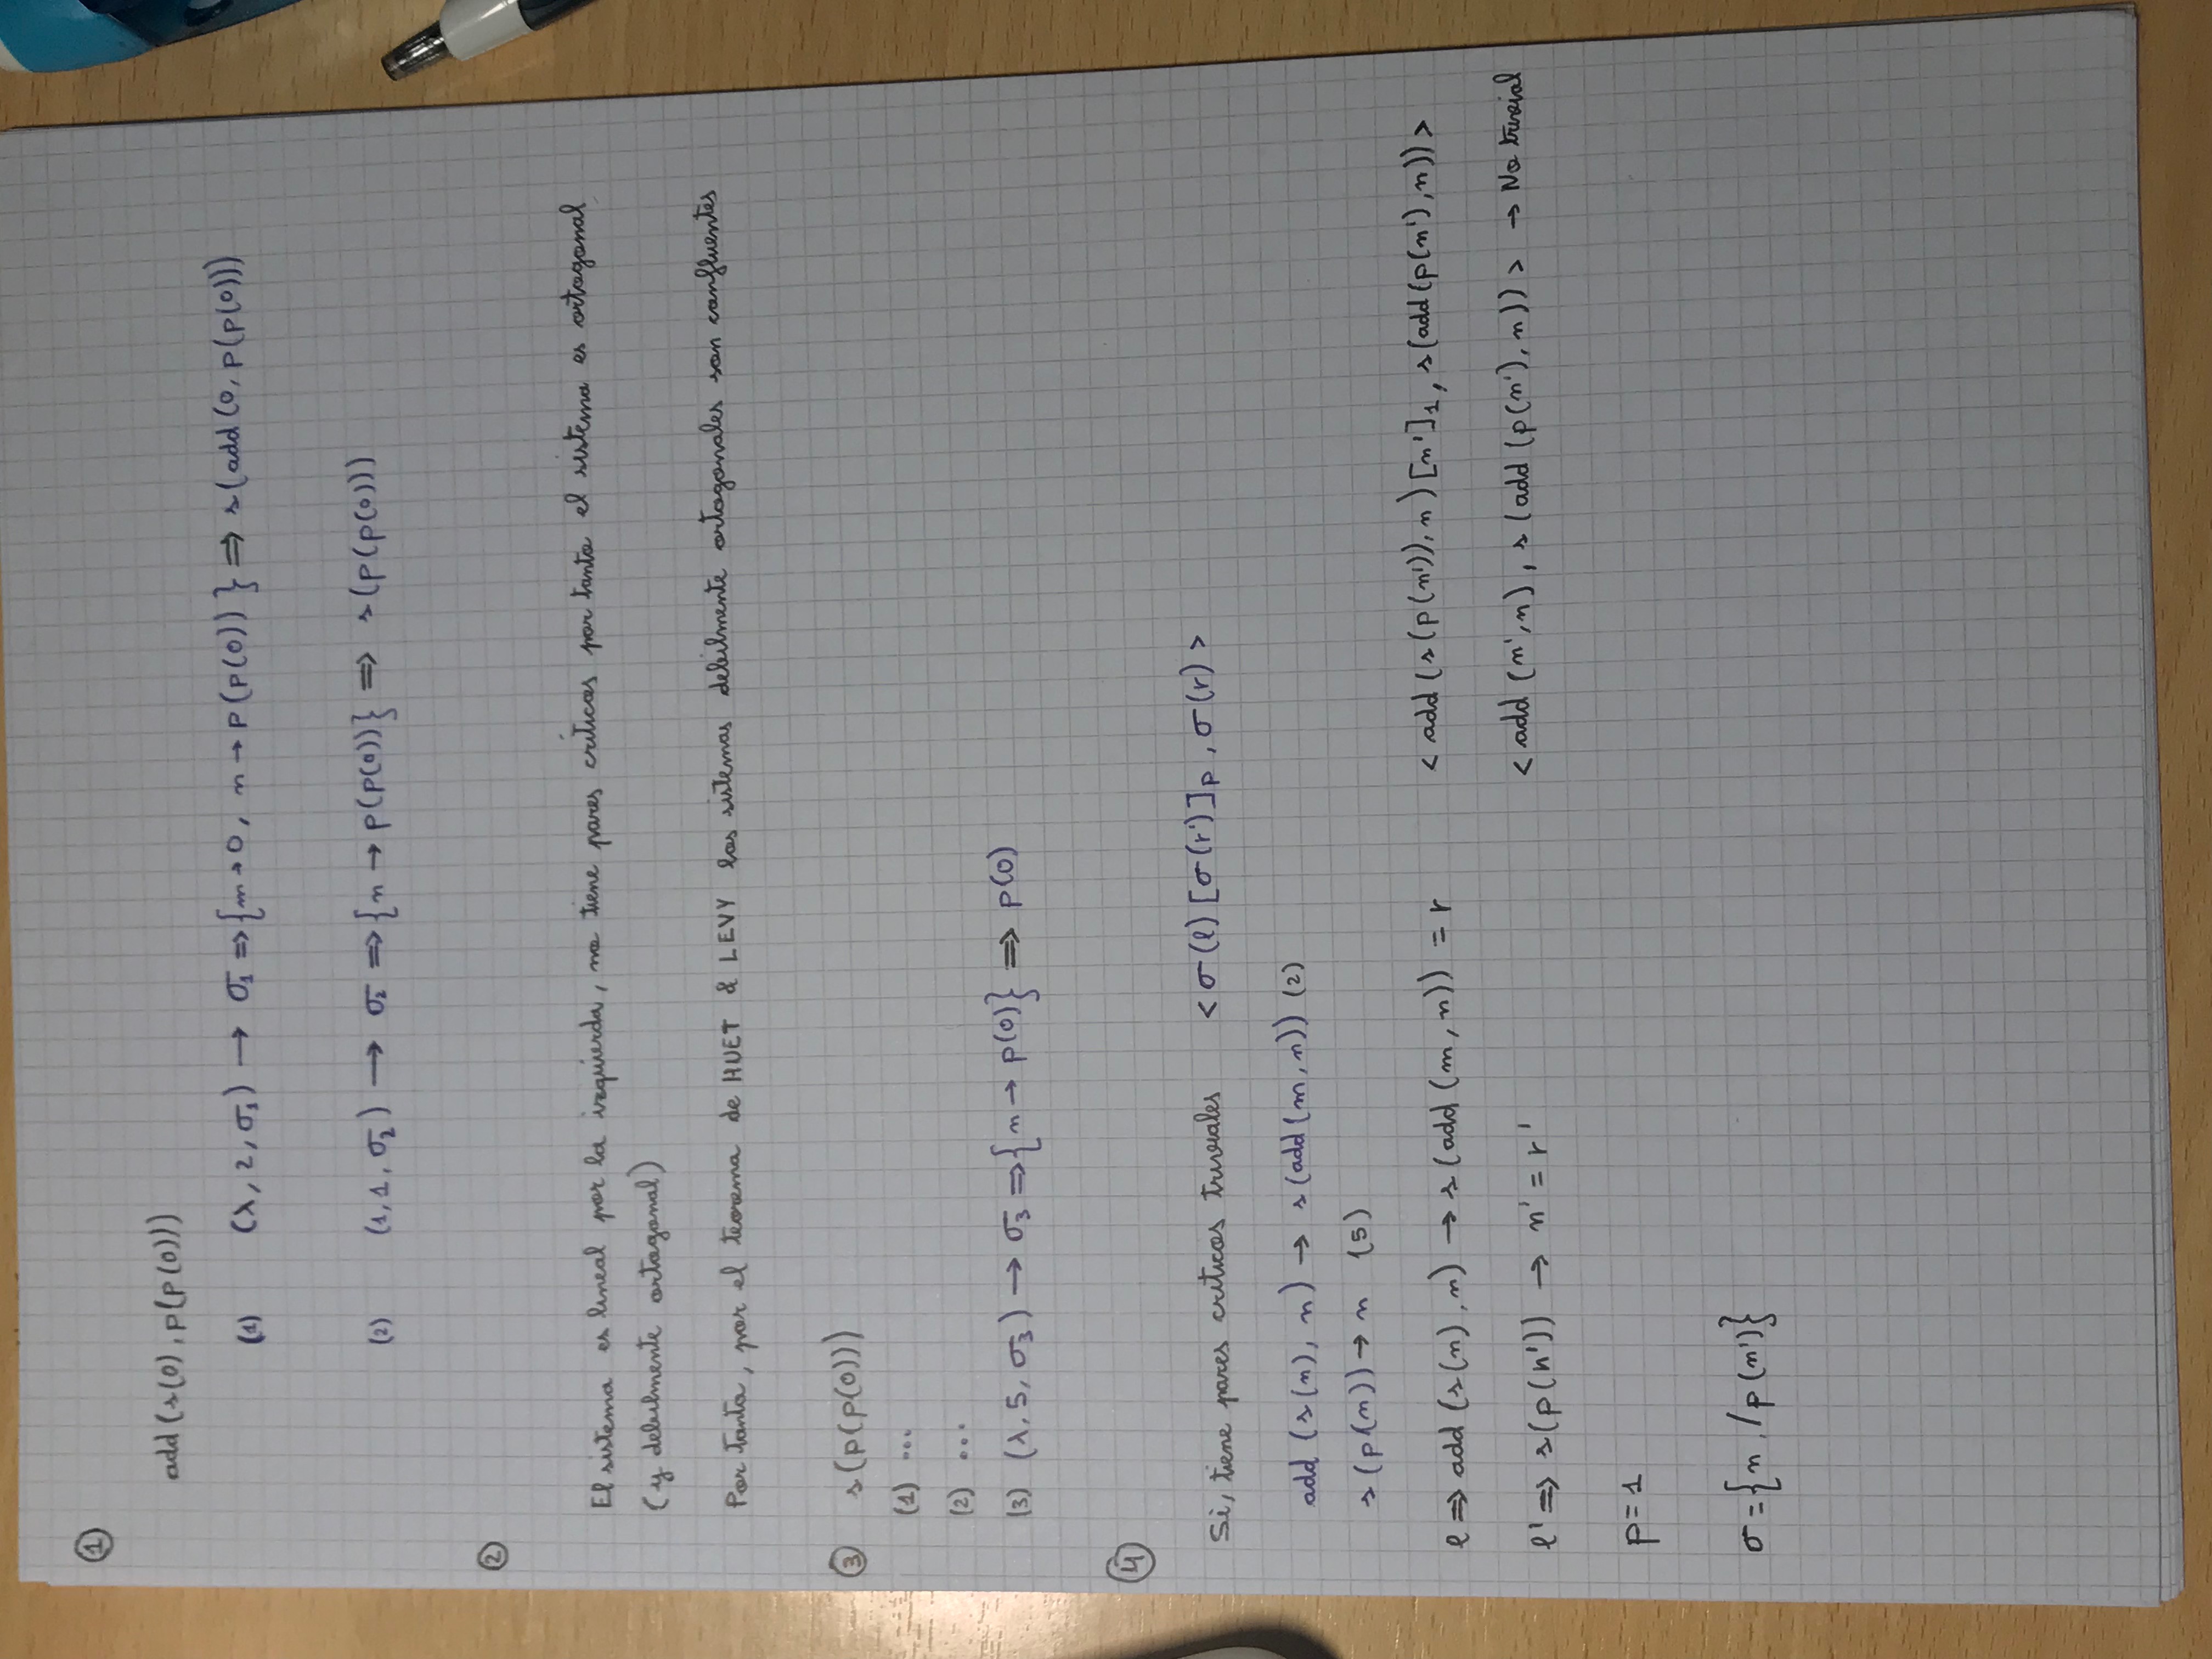 ①
add (s(0), p(p(0)))
(1) (λ, 2, σ₁) → σ₁ ⇒ {m → 0, n → p(p(0))} ⇒ s(add(0, p(p(0)))
(2) (1, 1, σ₂) → σ₂ ⇒ {n → p(p(0))} ⇒ s(p(p(0)))
②
El sistema es lineal por la izquierda, no tiene pares críticos por tanto el sistema es ortogonal
(y debilmente ortogonal)
Por tanto, por el teorema de HUET & LEVY los sistemas debilmente ortogonales son confluentes
③ s(p(p(0)))
(1) ...
(2) ...
(3) (λ, 5, σ₃) → σ₃ ⇒ {n → p(0)} ⇒ p(0)
④
Si, tiene pares criticos triviales < σ(l) [σ(r')]p , σ(r) >
add (s(n), n) → s(add(m, n)) (2)
s(p(n)) → n (5)
l ⇒ add (s(n), n) → s(add(m, n)) = r < add (s(p(n')), n) [n']₁, s(add(p(n'), n)) >
l' ⇒ s(p(n')) → n' = r' < add (n', n), s(add(p(n'), n)) > → No trivial
p = 1
σ = {n / p(n')}